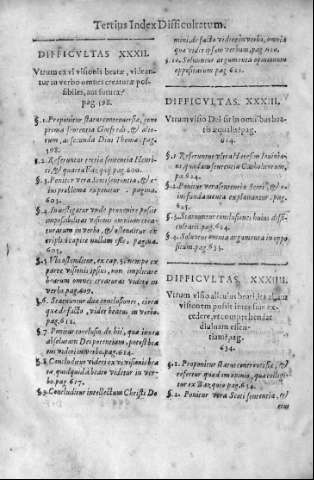 Tertius Index Difficultatum.
DIFFICVLTAS XXXII.
Vtrum ex vi visionis beatæ, videan-
tur in verbo omnes creaturæ pos-
sibiles, aut futuræ?
pag. 598.
§.1. Proponitur status controuersia, cum
prima sententia Ginfredi, & alio-
rum, ac secunda Diui Thomæ. pag.
598.
§.2. Referuntur tertia sententia Henri-
ci, & quarta Bacon. pag. 600.
§.3. Ponitur vera Scoti sententia, &
problema reponitur. pagina.
603.
§.4. Inuestigatur vnde proueniat posse
impossibilitas visionis omnium crea-
turarum in verbo, & ostenditur ex
capacitate nullam esse. pagina.
605.
§.5. Vbi ostenditur, ex cap. neque ex
parte visionis ipsius, non implicare
beatum omnes creaturas videre in
verbo. pag. 609.
§.6. Statuuntur duæ conclusiones, circa
quod de facto, videt beatus in verbo.
pag. 612.
§.7. Ponitur conclusio, de his, quæ intra
absolutam Dei potentiam, potest bea-
tus videri in verbo. pag. 614.
§.8. Concluditur videri ex vi visionis bea-
tæ quidquid à beato videtur in ver-
bo. pag. 617.
§.9. Concluditur intellectum Christi Do
mini, de facto videre in verbo, omnia
que videt ipsum verbum, pag. 620.
§.10. Soluuntur argumenta
oppositarum pag. 621.
DIFFICVLTAS, XXXIII.
Vtrum visio Dei sit in omnibus bea-
tis æqualis? pag.
624.
§.1. Referuntur
quædam sententia Catholicorum,
pa. 624.
§.2. Ponitur vera sententia Scoti, & eius
fundamenta explanantur. pag.
625.
§.3. Statuuntur conclusiones huius diffi-
cultatis. pag. 624.
§.4. Soluuntur omnia argumenta in oppo-
situm. pag. 631.
DIFFICVLTAS, XXXIIII.
Vtrum visio alicuius beati, ita aliam
visionem possit intensiue ex-
cedere, vt comprehendat
diuinam essen-
tiam? pag.
634.
§.1. Proponitur status controuersiæ, &
refertur quod
ex Bazquio pag. 634.
§.2. Ponitur vera Scoti sententia, &
eius